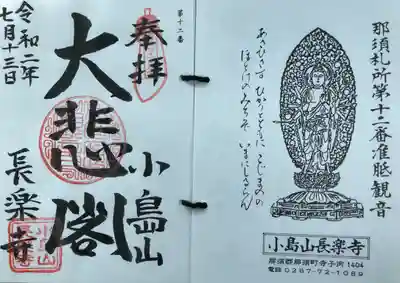 那須札所第十二番准胝観音
あさひさす ひかりとともに こじまの
ほとけのみちを
小島山長楽寺
那須郡那須町寺子丙1404
電話0287-72-1089
第十二番
奉拝
大悲閣
小島山
長楽寺
令和二年
七月十三日
小島山
長楽寺